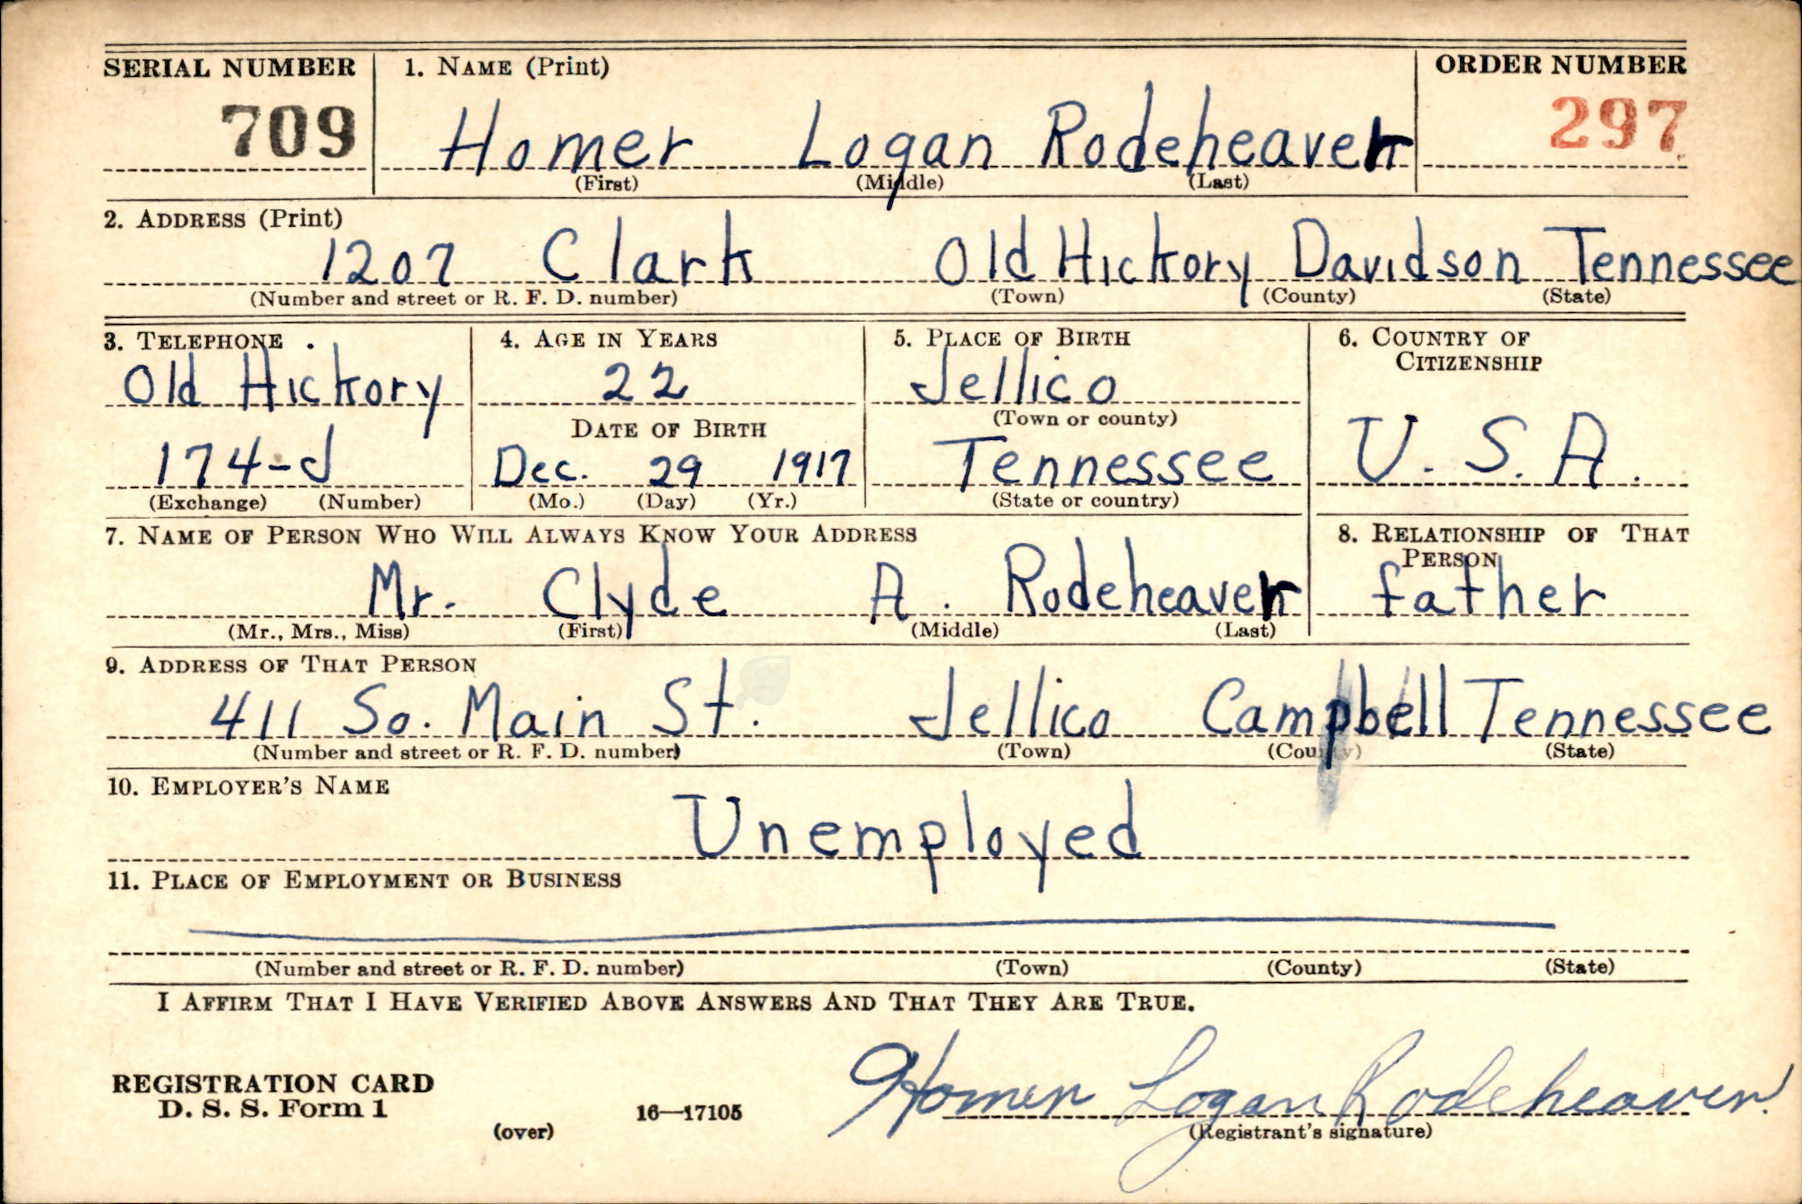 SERIAL NUMBER 1. NAME (Print) ORDER NUMBER
709 Homer Logan Rodeheaver 297
(First) (Middle) (Last)
2. ADDRESS (Print)
1207 Clark Old Hickory Davidson Tennessee
(Number and street or R. F. D. number) (Town) (County) (State)
3. TELEPHONE 4. AGE IN YEARS 5. PLACE OF BIRTH 6. COUNTRY OF
CITIZENSHIP
Old Hickory 22 Jellico
(Town or county)
DATE OF BIRTH
174-J Dec. 29 1917 Tennessee U. S. A.
(Exchange) (Number) (Mo.) (Day) (Yr.) (State or country)
7. NAME OF PERSON WHO WILL ALWAYS KNOW YOUR ADDRESS 8. RELATIONSHIP OF THAT
PERSON
Mr. Clyde A. Rodeheaver father
(Mr., Mrs., Miss) (First) (Middle) (Last)
9. ADDRESS OF THAT PERSON
411 So. Main St. Jellico Campbell Tennessee
(Number and street or R. F. D. number) (Town) (County) (State)
10. EMPLOYER'S NAME
Unemployed
11. PLACE OF EMPLOYMENT OR BUSINESS
(Number and street or R. F. D. number) (Town) (County) (State)
I AFFIRM THAT I HAVE VERIFIED ABOVE ANSWERS AND THAT THEY ARE TRUE.
REGISTRATION CARD Homer Logan Rodeheaver
D. S. S. Form 1 16—17105
(over) (Registrant's signature)